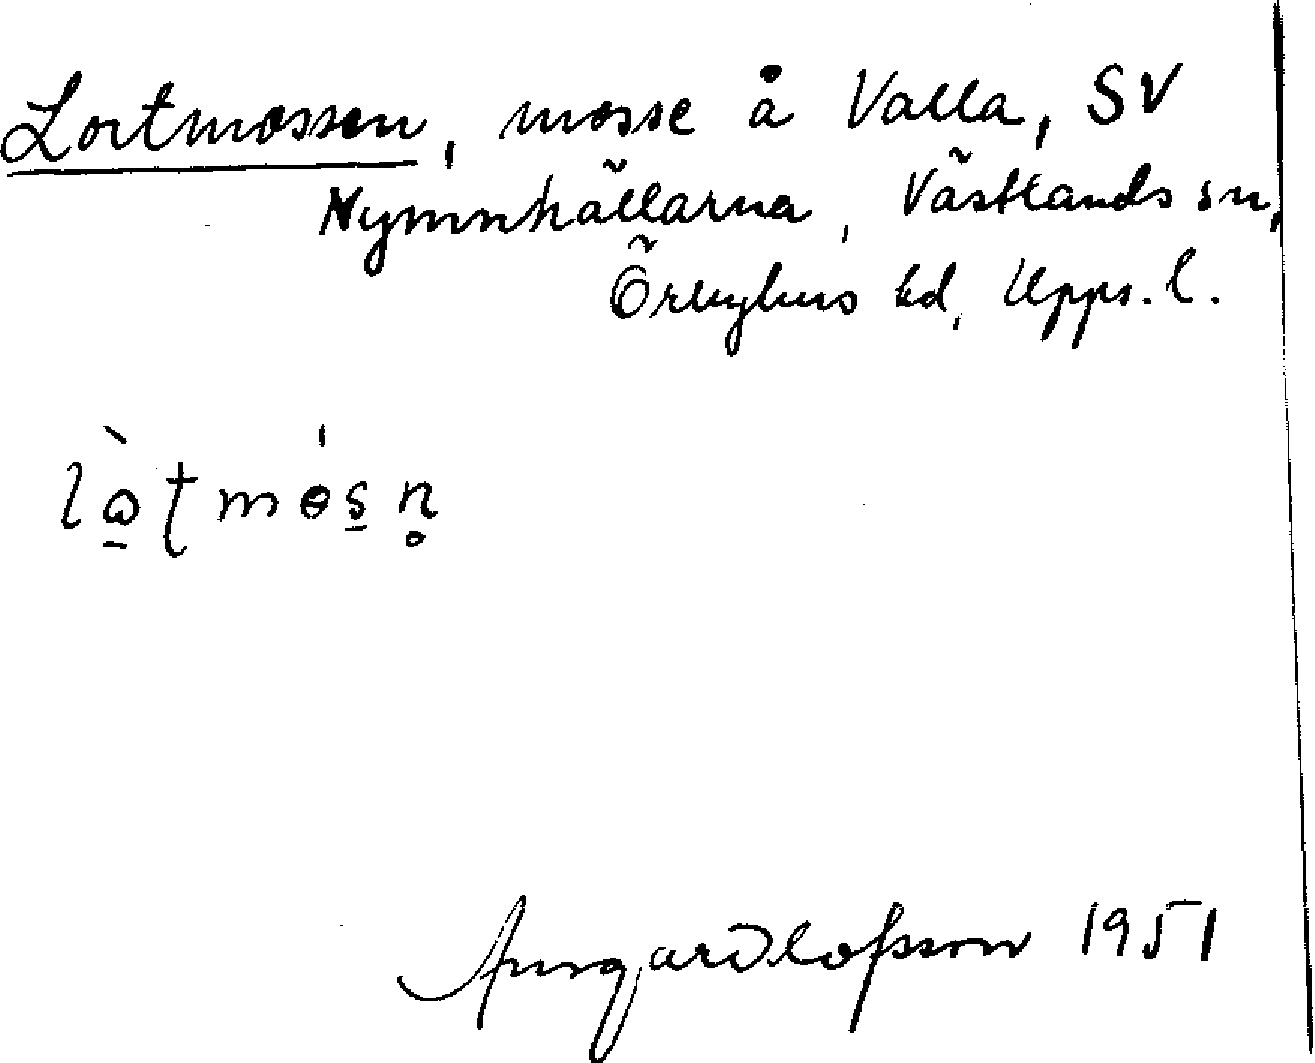 Lortmossen, mosse å Valla, SV
Nymnhällarna, Västlands sn,
Örbyhus hd, Upps. l.
lɷ̀ʈmɵ́sn̥
Ansgar Olofsson 1951